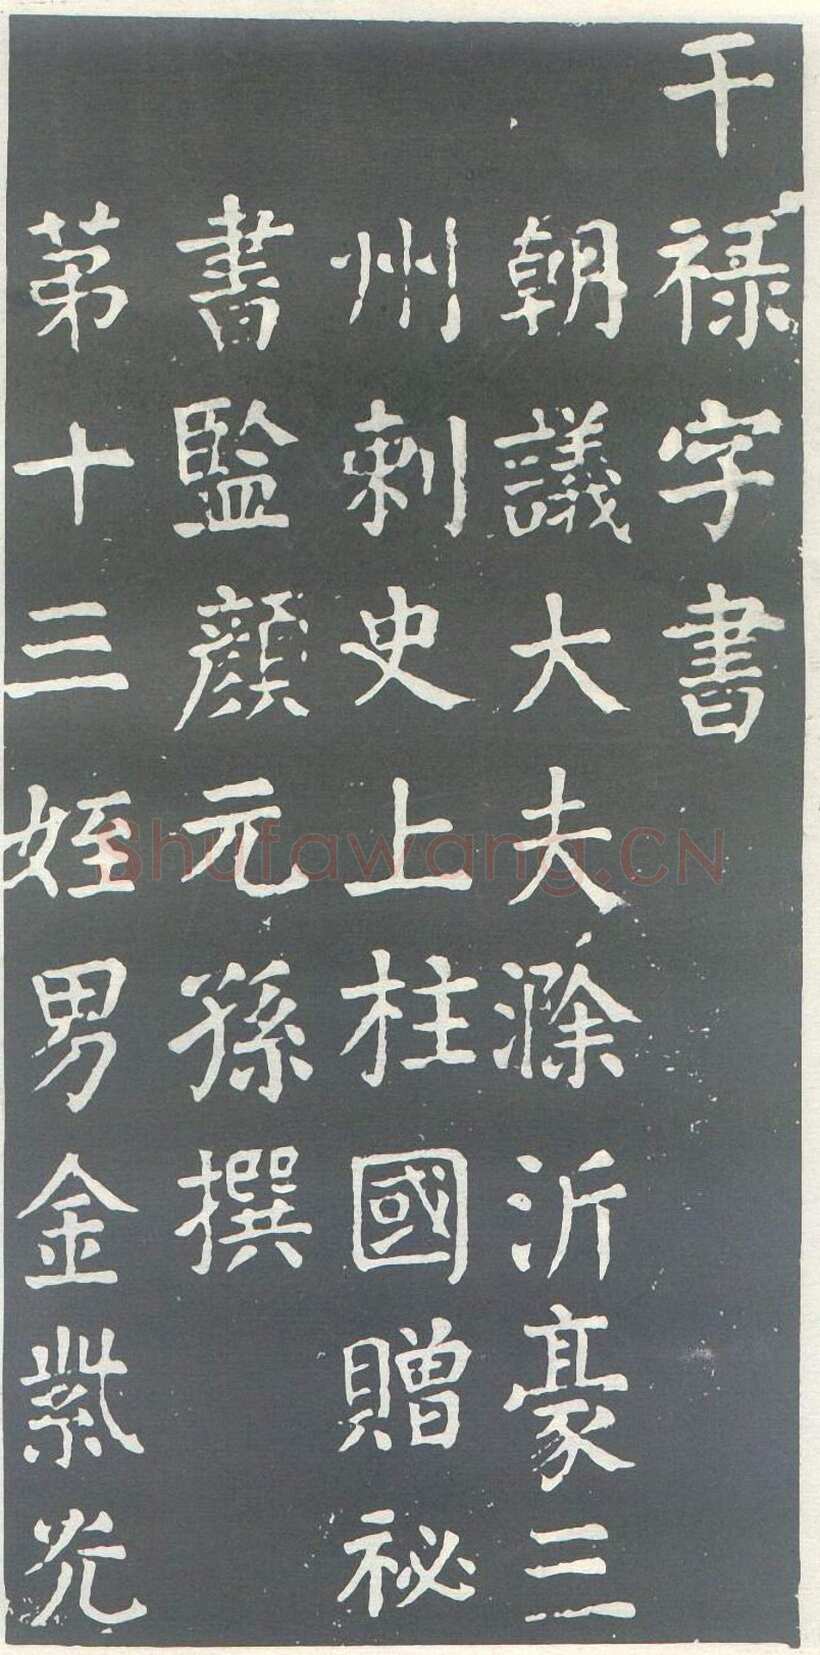 干禄字書
朝議大夫滁沂豪三
州刺史上柱國贈祕
書監顏元孫撰
第十三姪男金紫光
Shufawang.CN